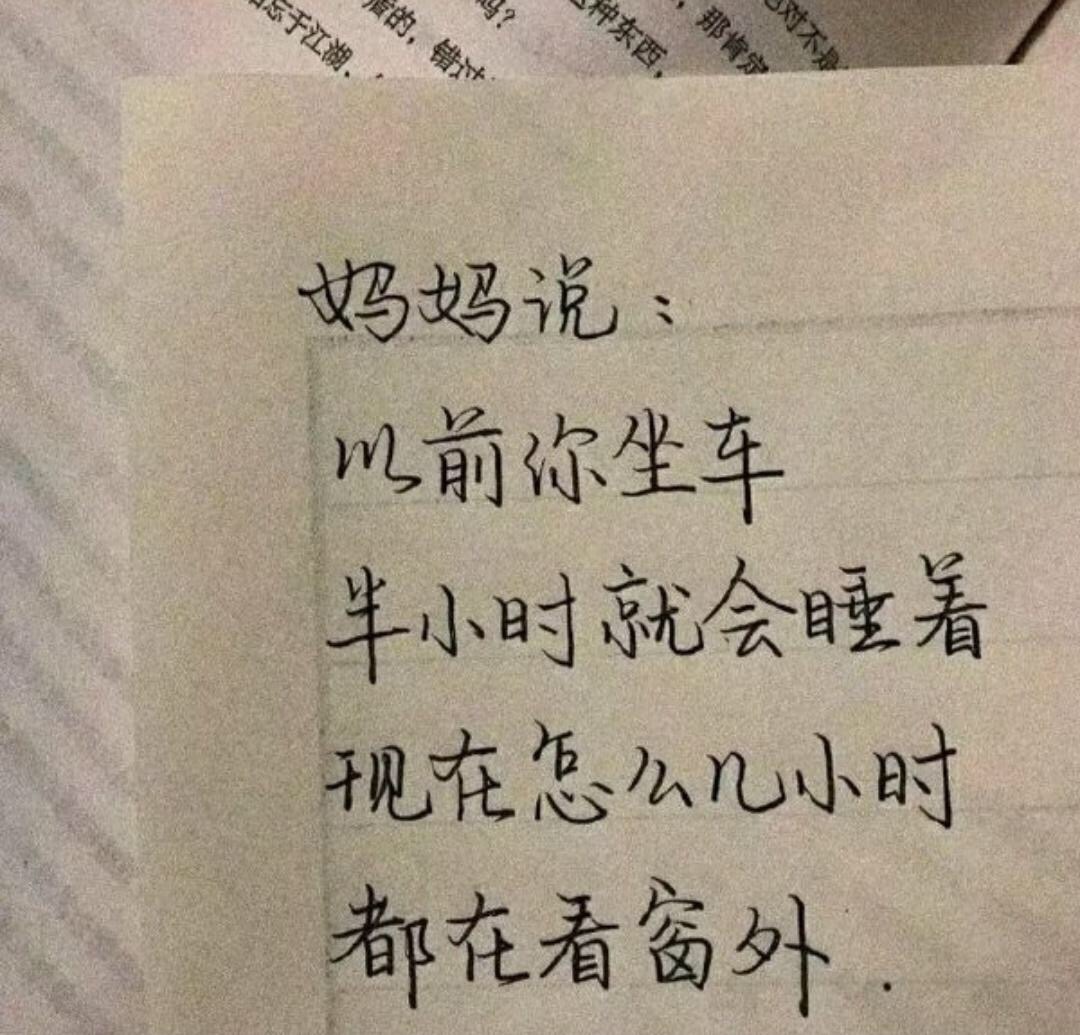 忘于江湖,
盾的,错过
吗?
种东西,
,那肯定
对不是
妈妈说:
以前你坐车
半小时就会睡着
现在怎么几小时
都在看窗外.